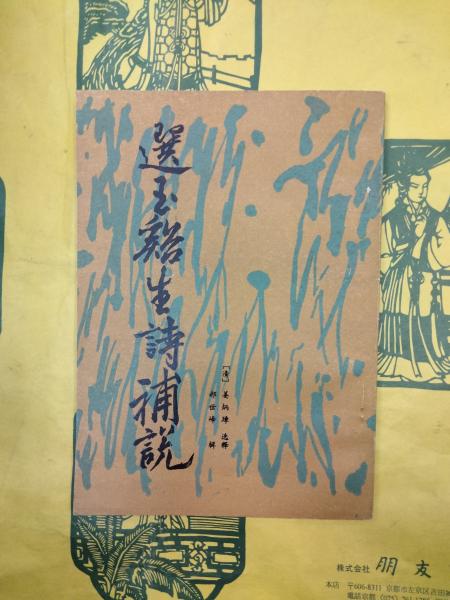 選玉谿生詩補說
［清］姜炳璋 选釋
郝世峰 辑
株式会社 朋友
本店 〒606-8311 京都市左京区吉田神
電話京都(075)761-1285